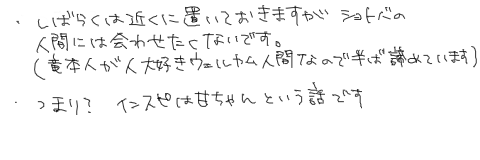 ・しばらくは近くに置いておきますが ショトベの
人間には会わせたくないです。
(竜本人が人大好きウェルカム人間なので半ば諦めています)
・つまり? インスピは甘ちゃんという話です